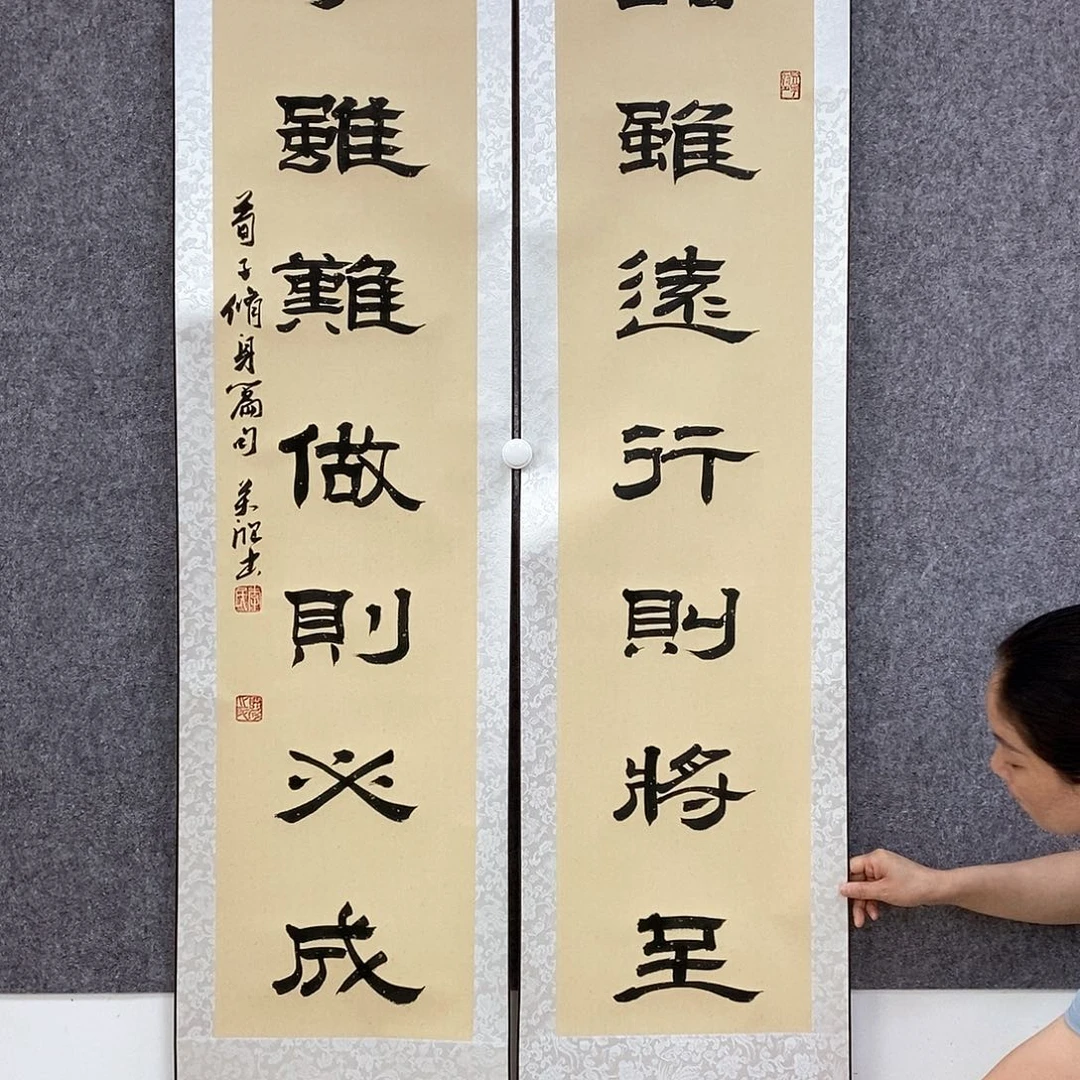 雖遠行則將至
雖難做則必成
荀子脩身篇句